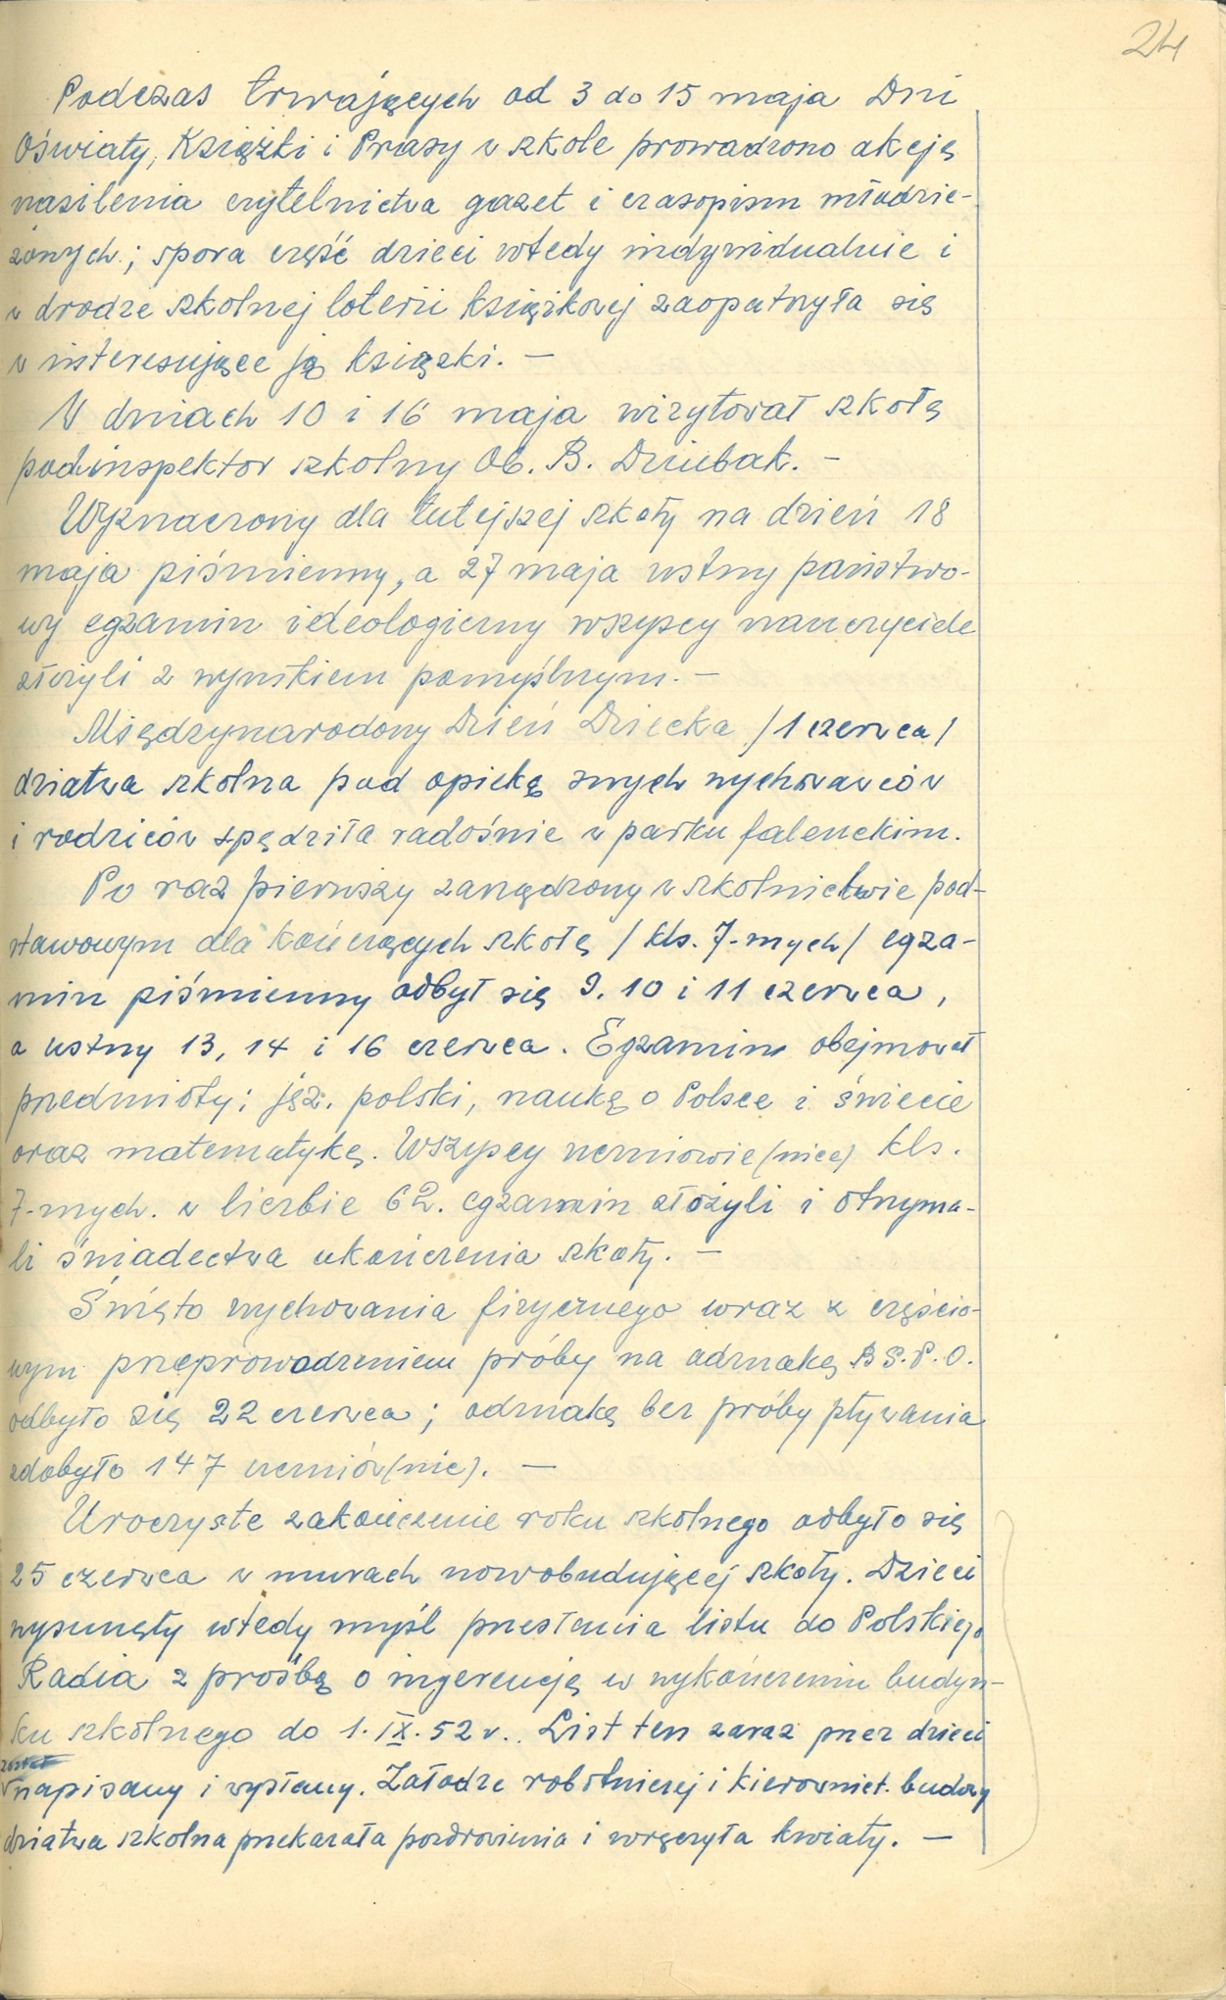 24
Podczas trwających od 3 do 15 maja Dni
Oświaty, Książki i Prasy w szkole prowadzono akcję
nasilenia czytelnictwa gazet i czasopism młodzie-
żowych; spora część dzieci wtedy indywidualnie i
w drodze szkolnej loterii książkowej zaopatrzyła się
w interesujące ją książki. —
W dniach 10 i 16 maja wizytował szkołę
podinspektor szkolny Ob. B. Dziubak. —
Wyznaczony dla tutejszej szkoły na dzień 18
maja piśmienny, a 27 maja ustny państwo-
wy egzamin ideologiczny wszyscy nauczyciele
złożyli z wynikiem pomyślnym. —
Międzynarodowy Dzień Dziecka /1 czerwca/
dziatwa szkolna pod opieką swych wychowawców
i rodziców spędziła radośnie w parku falenckim.
Po raz pierwszy zarządzony w szkolnictwie pod-
stawowym dla kończących szkołę /kls. 7-mych/ egza-
min piśmienny odbył się 9. 10 i 11 czerwca,
a ustny 13, 14 i 16 czerwca. Egzamin obejmował
przedmioty: jęz. polski, naukę o Polsce i świecie
oraz matematykę. Wszyscy uczniowie (nice) kls.
7-mych. w liczbie 62. egzamin złożyli i otrzyma-
li świadectwa ukończenia szkoły. —
Święto wychowania fizycznego wraz z częścio-
wym przeprowadzeniem próby na odznakę B S.P.O.
odbyło się 22 czerwca; odznakę bez próby pływania
zdobyło 147 uczniów(nic). —
Uroczyste zakończenie roku szkolnego odbyło się
25 czerwca w murach nowobudującej szkoły. Dzieci
wysunęły wtedy myśl przesłania listu do Polskiego
Radia z prośbą o ingerencję w wykończeniu budyn-
ku szkolnego do 1. IX. 52 r.. List ten zaraz przez dzieci
został
napisany i wysłany. Załodze robotniczej i kierownict. budowy
dziatwa szkolna przekazała pozdrowienia i wręczyła kwiaty. —